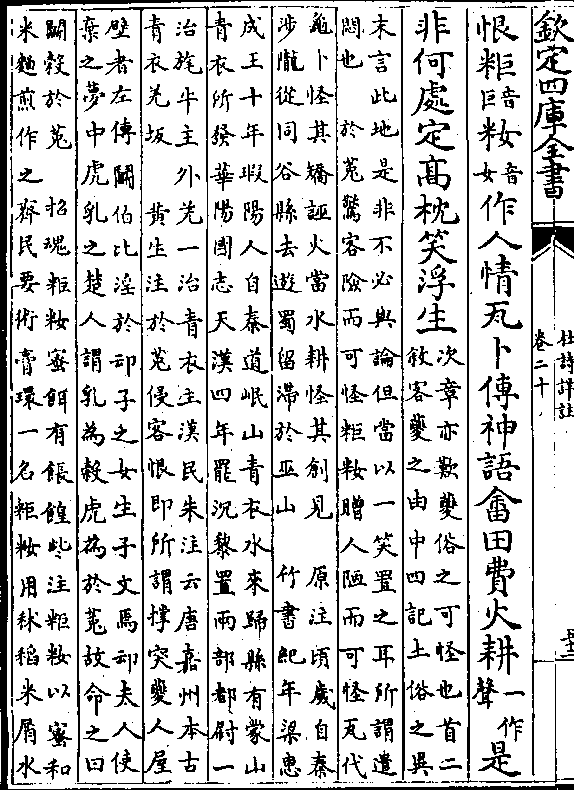 欽定四庫全書
杜詩詳註
卷二十
恨粔音巨籹音女作人情瓦卜傳神語畬田費火耕一作聲是
非何處定高枕笑浮生次章亦歎䕫俗之可怪也首二
敘客䕫之由中四記土俗之異
末言此地是非不必與論但當以一笑置之耳所謂遣
悶也 於菟驚客險而可怪粔籹贈人陋而可怪瓦代
龜卜怪其矯誣火當水耕怪其創見 原注頃歲自秦
涉隴從同谷縣去遊蜀留滯於巫山 竹書紀年梁惠
成王十年瑕陽人自秦道岷山青衣水來歸縣有蒙山
青衣所發華陽國志天漢四年罷沉黎置兩部都尉一
治旄牛主外羌一治青衣主漢民朱注云唐嘉州本古
青衣羌坂 黄生注於菟侵客恨即所謂撑突䕫人屋
壁者左傳鬭伯比淫於䢵子之女生子文焉䢵夫人使
棄之夢中虎乳之楚人謂乳為穀虎為於菟故命之曰
鬭穀於菟 招魂粔籹蜜餌有餦餭些注粔籹以蜜和
米麵煎作之齊民要術膏環一名粔籹用秫稻米屑水